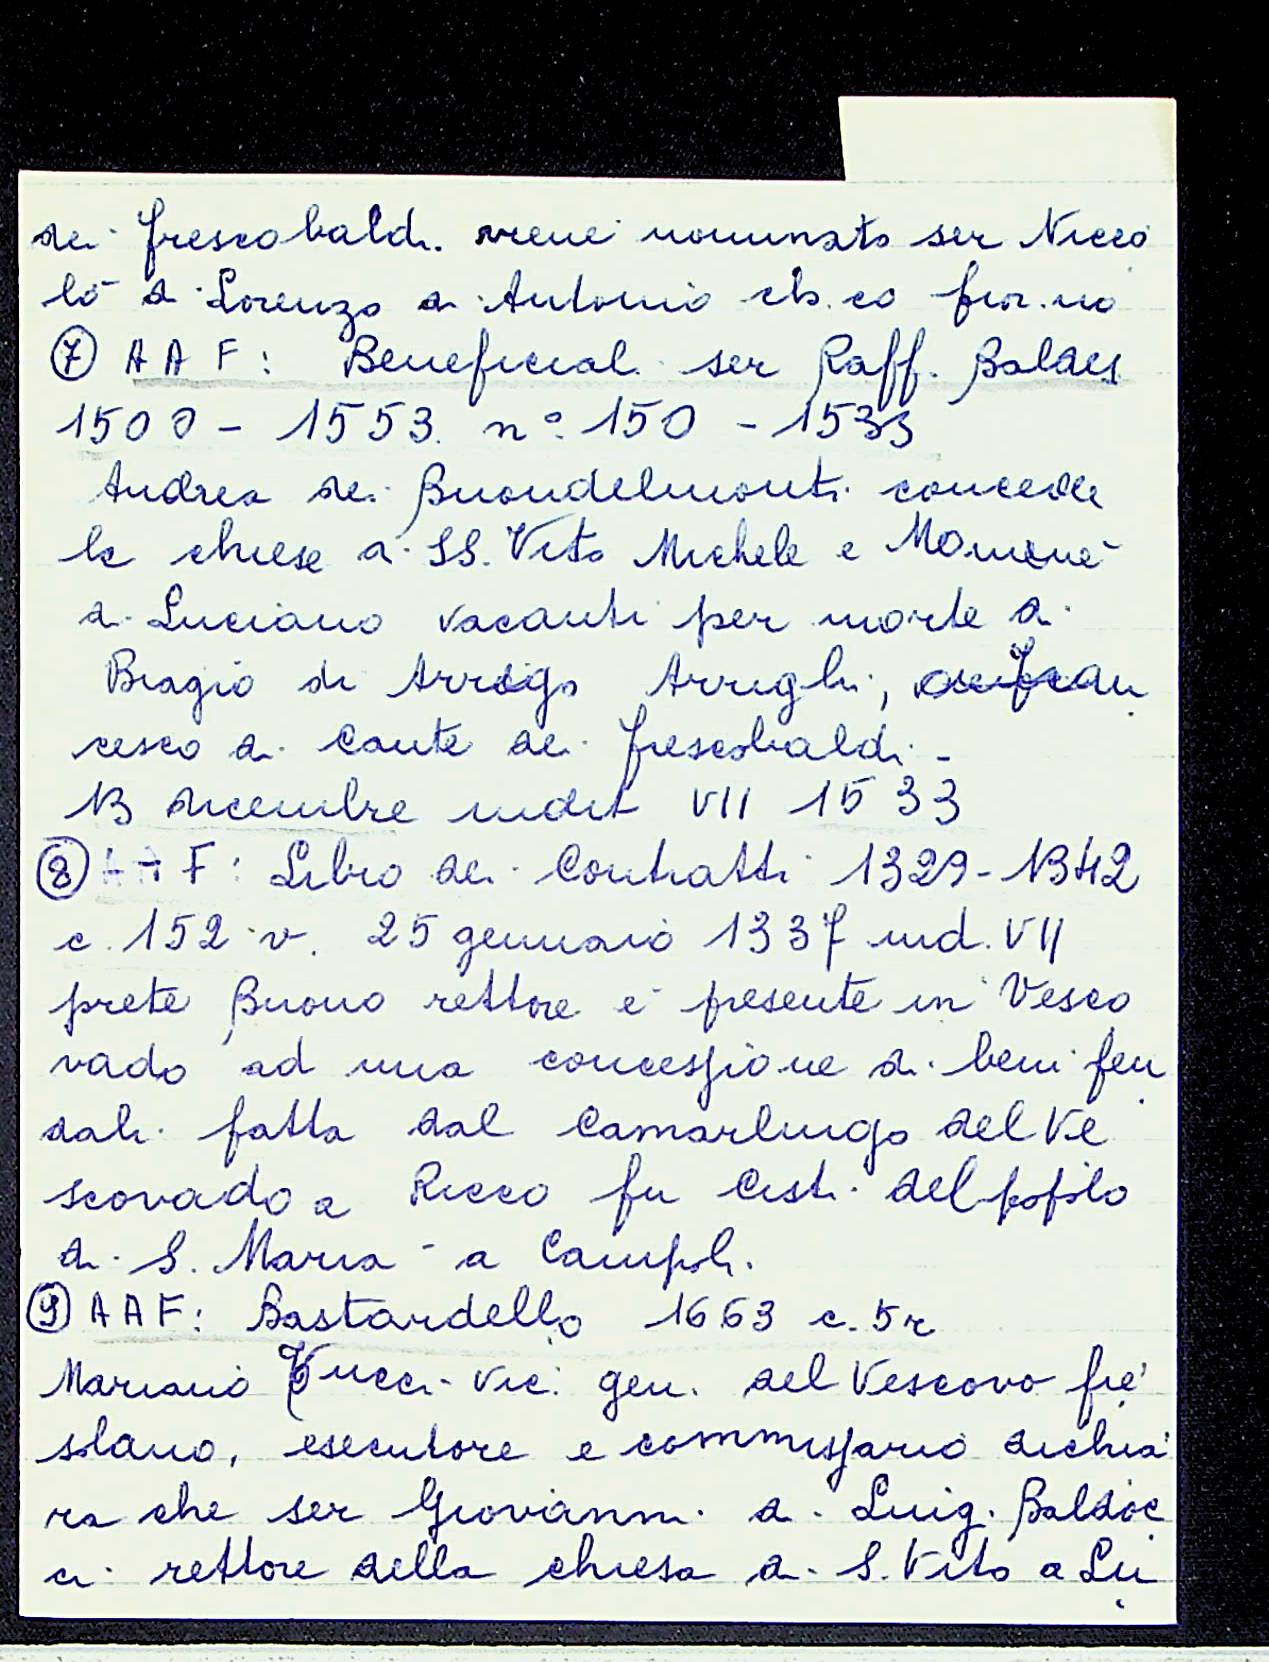 dei Frescobaldi. viene nominato ser Nicco
lò di Lorenzo di Antonio ch.co fior.no
⑦ AAF: Beneficial. ser Raff. Baldes
1500 - 1553. n°. 150 - 1533
Andrea dei Buondelmonti concede
le chiese di SS. Vito Michele e Mommè
a Luciano vacanti per morte di
Biagio di Arrigo Arrighi, Fran
cesco di Cante dei Frescobaldi -
13 dicembre indit VII 1533
⑧ AAF: Libro dei Contratti 1329-1342
c. 152 v. 25 gennaio 1337 ind. VII
prete Buono rettore è presente in Vesco
vado ad una concessione di beni feu
dali fatta dal Camarlingo del Ve
scovado a Ricco fu Cisti del popolo
di S. Maria a Campoli.
⑨ AAF: Bastardello 1663 c. 5r
Mariano Tucci vic. gen. del Vescovo fie
solano, esecutore e commissario dichia
ra che ser Giovanni di Luig. Baldoc
ci rettore della chiesa di S. Vito a Lu